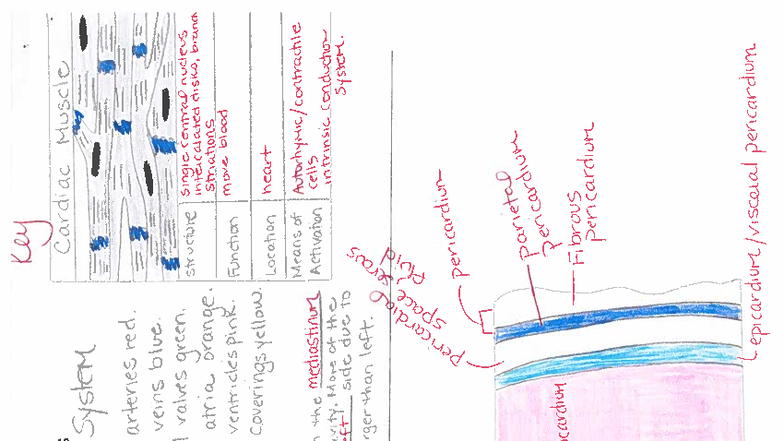 Key
Cardiac Muscle
Structure
single central nucleus
intercalated disks, branch
striations
Function
move blood
Location
heart
Means of
Activation
Autorhymic/contractile
cells
intrinsic conduction
system.
System
arteries red.
veins blue.
valves green.
atria orange.
ventricles pink.
Coverings yellow.
the mediastinum
More of the
side due to
than left.
pericardial serous
space fluid
pericardium
parietal
pericardium
Fibrous
pericardium
epicardium/visceral pericardium